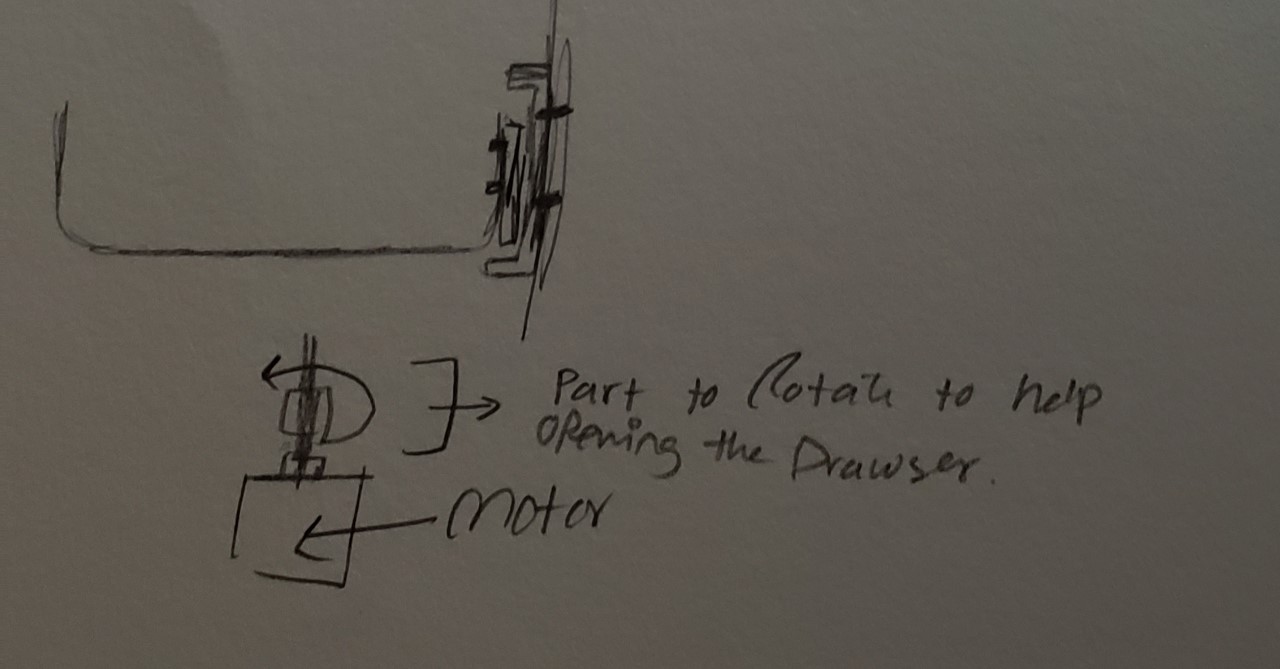 Part to Rotate to help
opening the Drawser.
motor